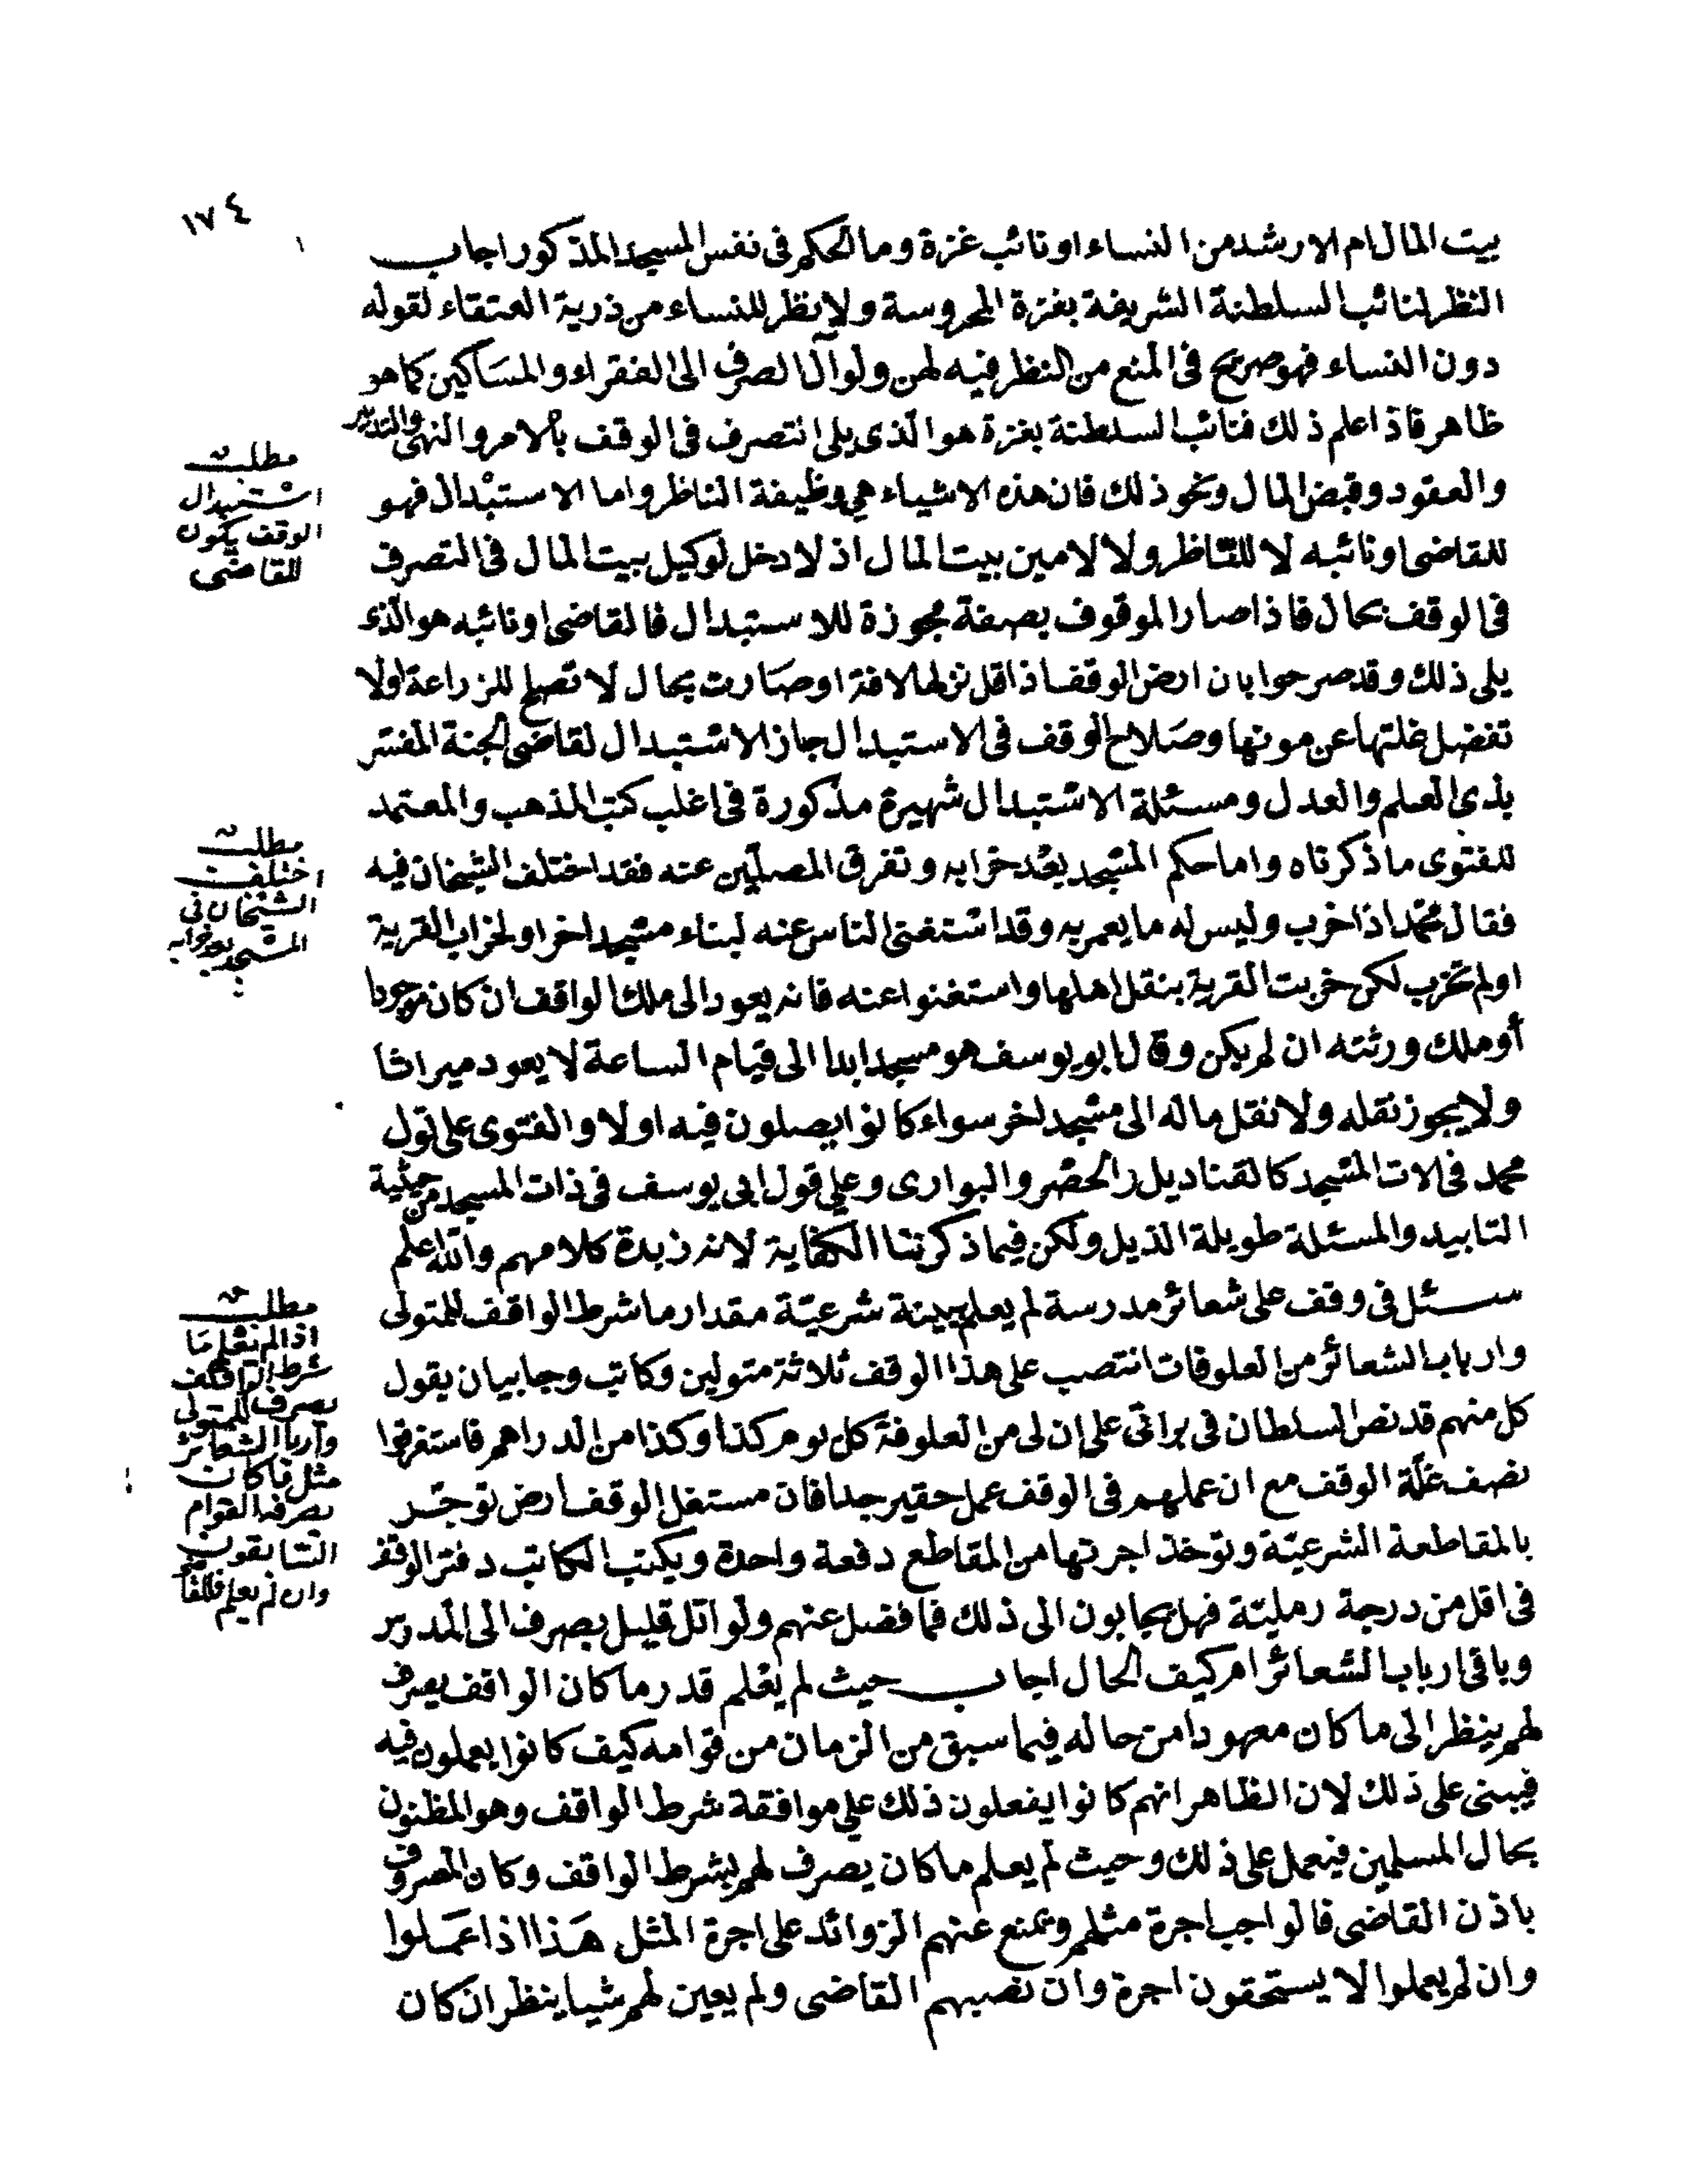 ١٧٤
بيت المال ام الارشد من النساء او نائب غزة وما الحكم فى نفس المسجد المذكور اجاب
النظر لنائب السلطنة الشريفة بغزة المحروسة ولا نظر للنساء من ذرية العتقاء لقوله
دون النساء فهو صريح فى المنع من النظر فيه لهن ولو آل الصرف الى الفقراء والمساكين كما هو
ظاهر فاذا علم ذلك فنائب السلطنة بغزة هو الذى يلى التصرف فى الوقف بالامر والنهى والتدبير
والعقود وقبض المال ونحو ذلك فان هذه الاشياء هى وظيفة الناظر واما الاستبدال فهو
للقاضى او نائبه لا للناظر ولا لامين بيت المال اذ لا دخل لوكيل بيت المال فى التصرف
فى الوقف بحال فاذا صار الموقوف بصفة مجوزة للاستبدال فالقاضى او نائبه هو الذى
يلى ذلك وقد صرحوا بان ارض الوقف اذا قل نزلها لافة او صارت بحال لا تصلح للزراعة او لا
تفضل غلتها عن مونها وصلاح الوقف فى الاستبدال جاز الاستبدال لقاضى الجنة المفسر
بذى العلم والعدل ومسئلة الاستبدال شهيرة مذكورة فى اغلب كتب المذهب والمعتمد
للفتوى ما ذكرناه واما حكم المسجد بعد خرابه وتفرق المصلين عنه فقد اختلف الشيخان فيه
فقال محمد اذا خرب وليس له ما يعمر به وقد استغنى الناس عنه لبناء مسجد اخر او لخراب القرية
او لم تخرب لكن خربت القرية بنقل اهلها واستغنوا عنه فانه يعود الى ملك الواقف ان كان موجودا
أو ملك ورثته ان لم يكن وقال ابو يوسف هو مسجد ابدا الى قيام الساعة لا يعود ميراثا
ولا يجوز نقله ولا نقل ماله الى مسجد اخر سواء كانوا يصلون فيه او لا والفتوى على قول
محمد فى الات المسجد كالقناديل والحصر والبوارى وعلى قول ابى يوسف فى ذات المسجد من حيثية
التابيد والمسئلة طويلة الذيل ولكن فيما ذكرنا الكفاية لانه زبدة كلامهم والله اعلم
سئل فى وقف على شعائر مدرسة لم يعلم ببينة شرعية مقدار ما شرط الواقف للمتولى
وارباب الشعائر من العلوفات انتصب على هذا الوقف ثلاثة متولين وكاتب وجابيان يقول
كل منهم قد نص السلطان فى براتى على ان لى من العلوفة كل يوم كذا وكذا من الدراهم فاستغرقوا
نصف غلة الوقف مع ان عملهم فى الوقف عمل حقير جدا فان مستغل الوقف ارض توجر
بالمقاطعة الشرعية وتوخذ اجرتها من المقاطع دفعة واحدة ويكتب الكاتب دفتر الوقف
فى اقل من درجة رملية فهل يجابون الى ذلك فما فضل عنهم ولو اقل قليل يصرف الى المدرس
وباقى ارباب الشعائر ام كيف الحال اجاب حيث لم يعلم قدر ما كان الواقف يصرف
لهم ينظر الى ما كان معهودا من حاله فيما سبق من الزمان من قوامه كيف كانوا يعملون فيه
فيبنى على ذلك لان الظاهر انهم كانوا يفعلون ذلك على موافقة شرط الواقف وهو المظنون
بحال المسلمين فيعمل على ذلك وحيث لم يعلم ما كان يصرف لهم بشرط الواقف وكان المصروف
باذن القاضى فالواجب اجرة مثلهم وتمنع عنهم الزوائد على اجرة المثل هذا اذا عملوا
وان لم يعملوا لا يستحقون اجرة وان نصبهم القاضى ولم يعين لهم شيا ينظر ان كان
مطلب
استبدال
الوقف يكون
للقاضى
مطلب
اختلف
الشيخان فى
المسجد بعد خرابه
مطلب
اذا لم نعلم ما
شرط الواقف
يصرف للمتولى
وارباب الشعائر
مثل ما كان
يصرفه القوام
السابقون
وان لم يعلم